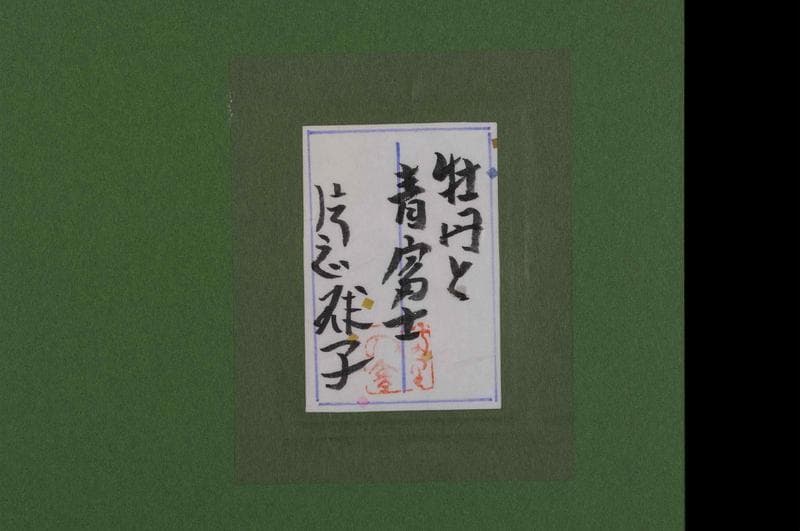 牡丹と
青富士
片岡球子